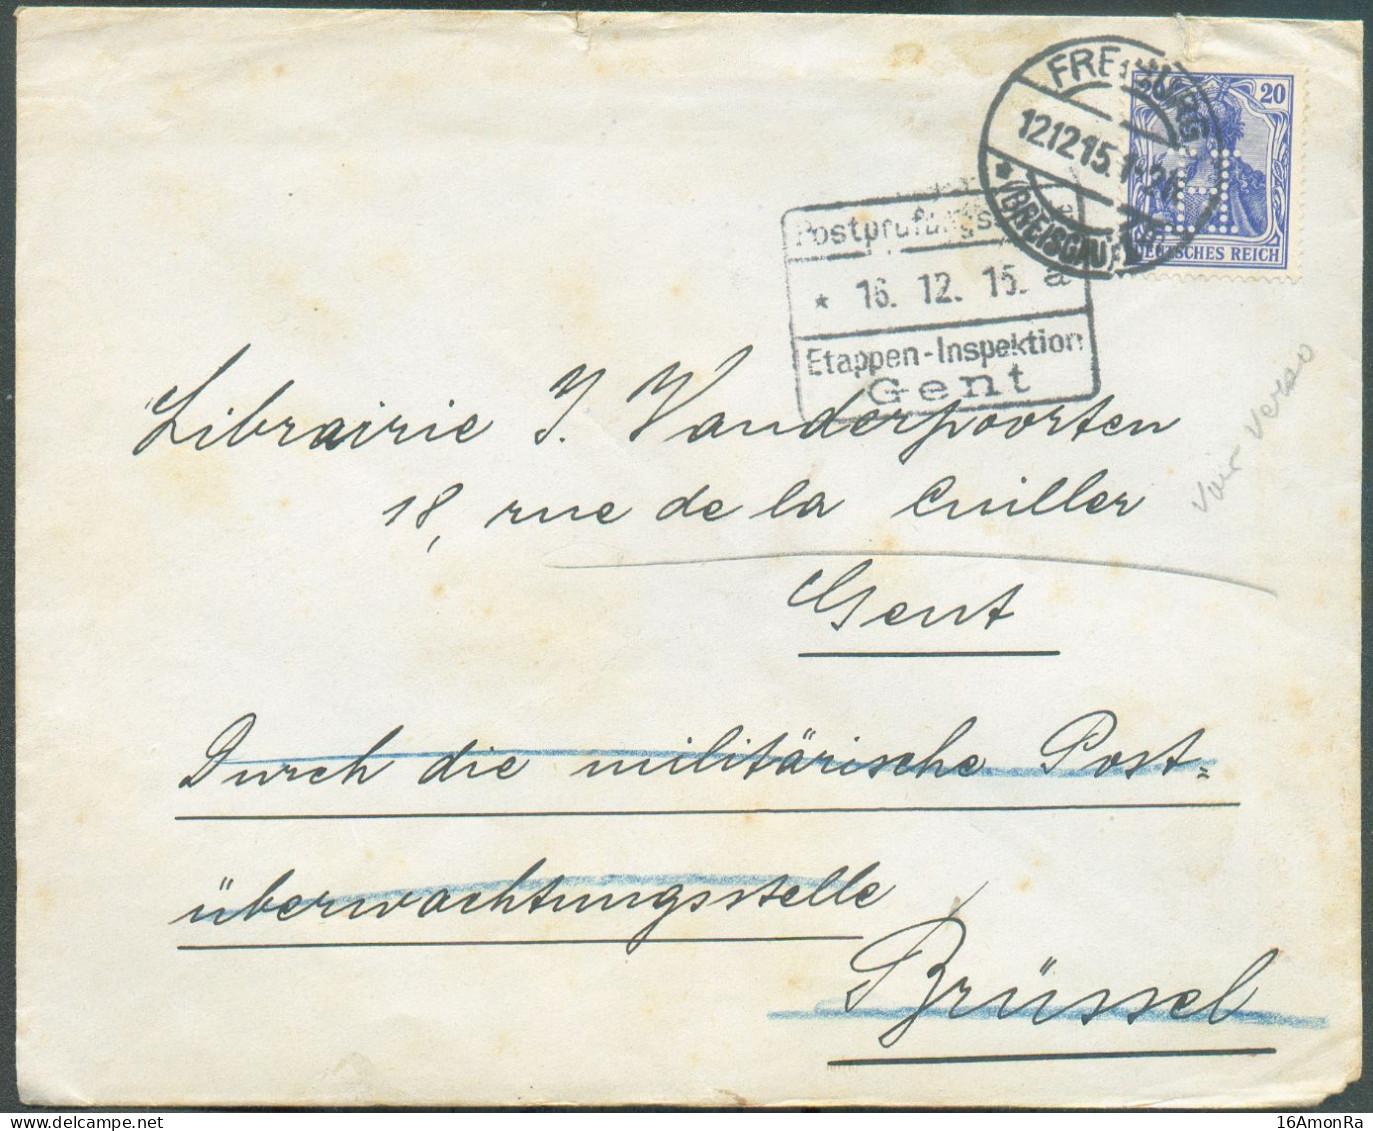 FREIBURG
12.12.15. 1-2N.
* (BREISGAU) *
20
DEUTSCHES REICH
Postprüfungsstelle
* 16. 12. 15. a
Etappen-Inspektion
Gent
Librairie J. Vanderpoorten
18, rue de la Cuiller
Gent
voir verso
Durch die militärische Post=
überwachtungsstelle
Brüssel
16AmonRa